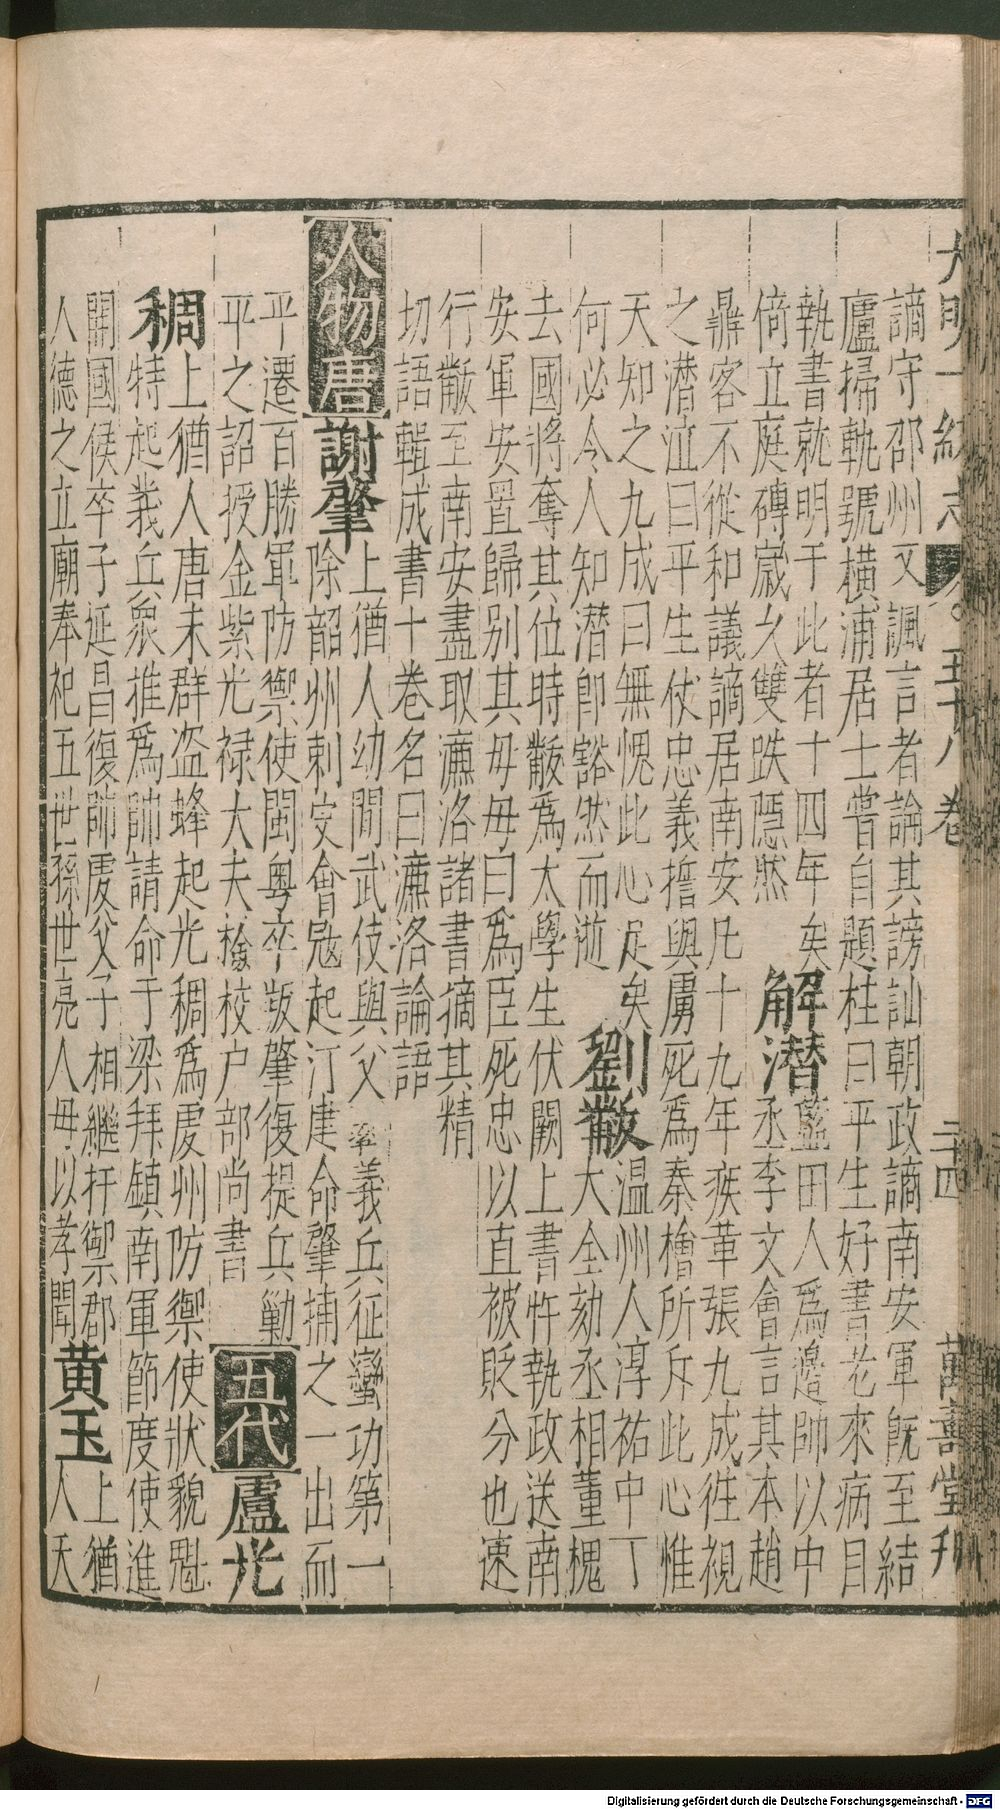 大明一統志 五十八卷 二十四 萬壽堂刊
謫守邵州又諷言者論其謗訕朝政謫南安軍旣至結
廬掃軌號橫浦居士嘗自題柱曰平生好書老來病目
執書就明于此者十四年矣
倚立庭磚歲久雙趺隱然
解潛藍田人爲邊帥以中
丞李文會言其本趙
鼎客不從和議謫居南安凡十九年疾革張九成徃視
之潛泣曰平生仗忠義誓與虜死爲秦檜所斥此心惟
天知之九成曰無愧此心足矣
何必令人知潛卽豁然而逝
劉黻温州人淳祐中丁
大全劾丞相董槐
去國將奪其位時黻爲太學生伏闕上書忤執政送南
安軍安置歸别其母母曰爲臣死忠以直被貶分也速
行黻至南安盡取濂洛諸書摘其精
切語輯成書十卷名曰濂洛論語
人物唐謝肇
上猶人幼閒武伎與父率義兵征蠻功第一
除韶州刺史會冦起汀建命肇捕之一出而
平遷百勝軍防禦使閩粤卒叛肇復提兵勦
平之詔授金紫光禄大夫檢校户部尚書
五代盧光
稠上猶人唐末群盗蜂起光稠爲虔州防禦使狀貌魁
特起義兵衆推爲帥請命于梁拜鎮南軍節度使進
開國侯卒子延昌復帥虔父子相繼扞禦郡
人德之立廟奉祀五世孫世亮人母以孝聞
黄玉上猶
人天
Digitalisierung gefördert durch die Deutsche Forschungsgemeinschaft - DFG